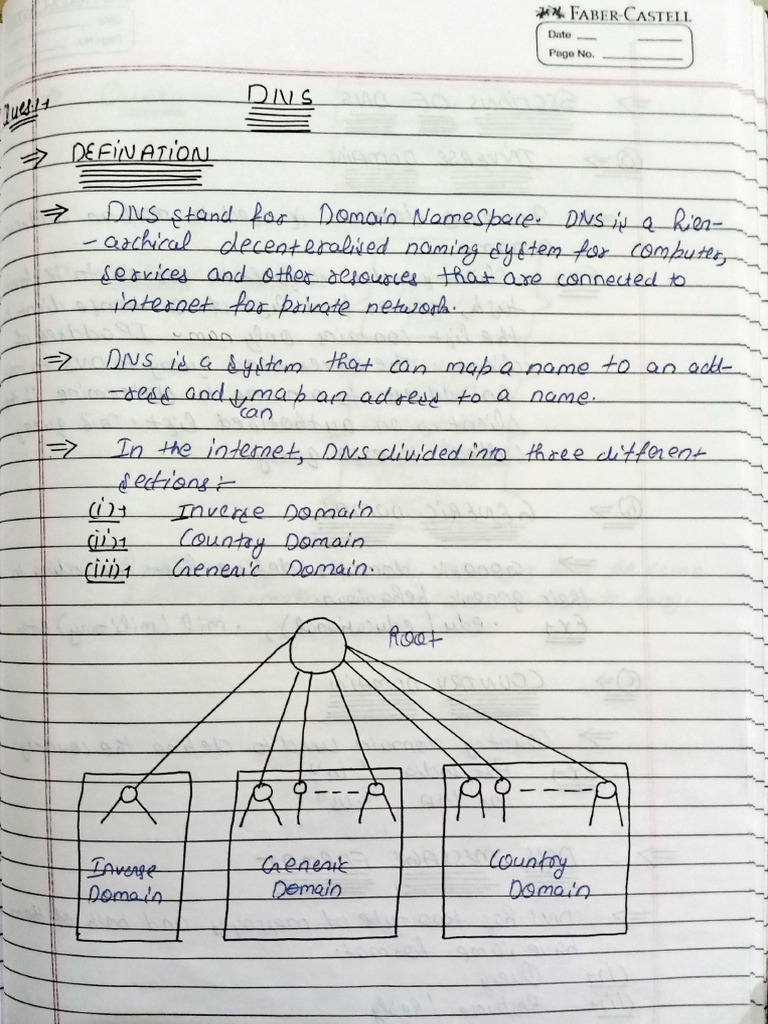 FABER-CASTELL
Date
Page No.
Ques:1→
DNS
⇒ DEFINATION
⇒ DNS stand for Domain NameSpace. DNS is a hier-
-archical decenteralised naming system for computer,
services and other resources that are connected to
internet for private network.
⇒ DNS is a system that can map a name to an add-
-ress and can map an adress to a name.
⇒ In the internet, DNS divided into three different
sections:-
(i)→ Inverse Domain
(ii)→ Country Domain
(iii)→ Generic Domain.
Root
Inverse Domain
Generic Domain
Country Domain